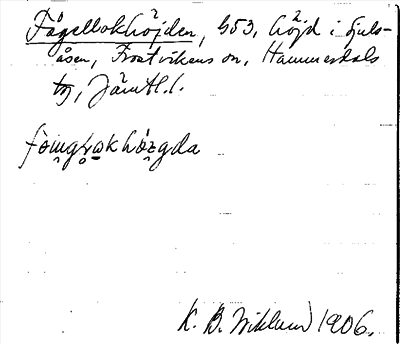 Fågelbokhöjden, 953, höjd i Hjuls-
åsen, Frostvikens sn, Hammerdals
tg, Jämtl. l.
K. B. Wiklund 1906.